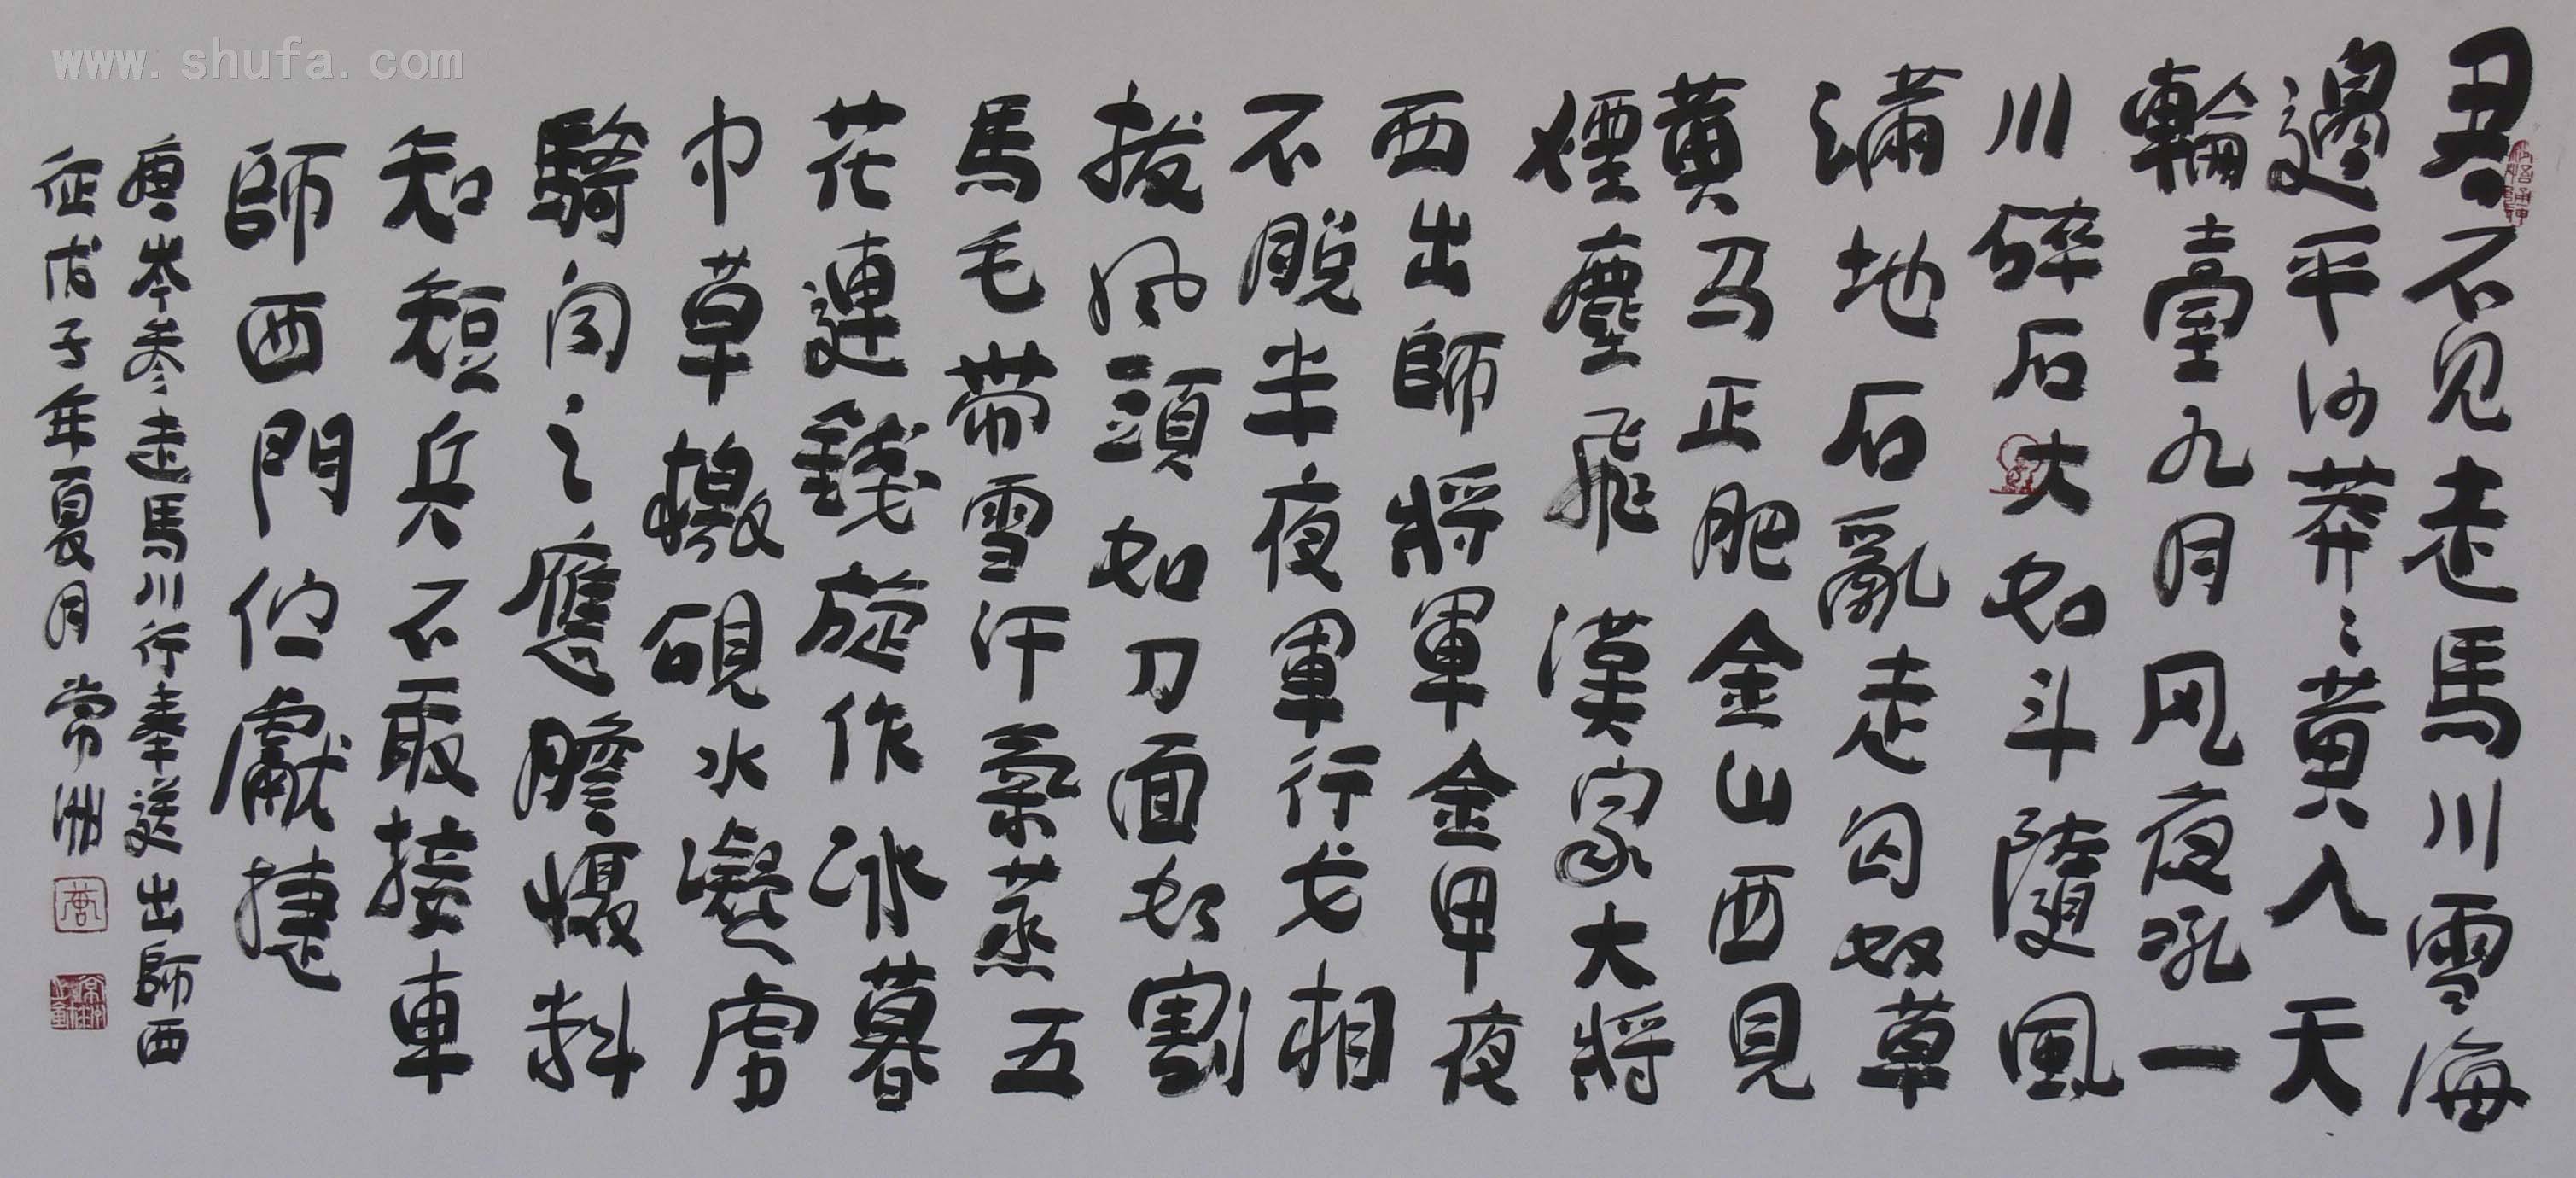 君不见走馬川雪海
邊平沙莽〻黄入天
輪臺九月风夜吼一
川碎石大如斗隨風
滿地石亂走匈奴草
黄马正肥金山西見
煙塵飛漢家大將
西出師將軍金甲夜
不脱半夜軍行戈相
拨风頭如刀面如割
馬毛帶雪汗氣蒸五
花連錢旋作冰暮
巾草檄硯水凝虜
騎闻之應膽慑料
知短兵不敢接車
師西門伫獻捷
唐岑參走馬川行奉送出師西
征戊子年夏月常洲
www.shufa.com